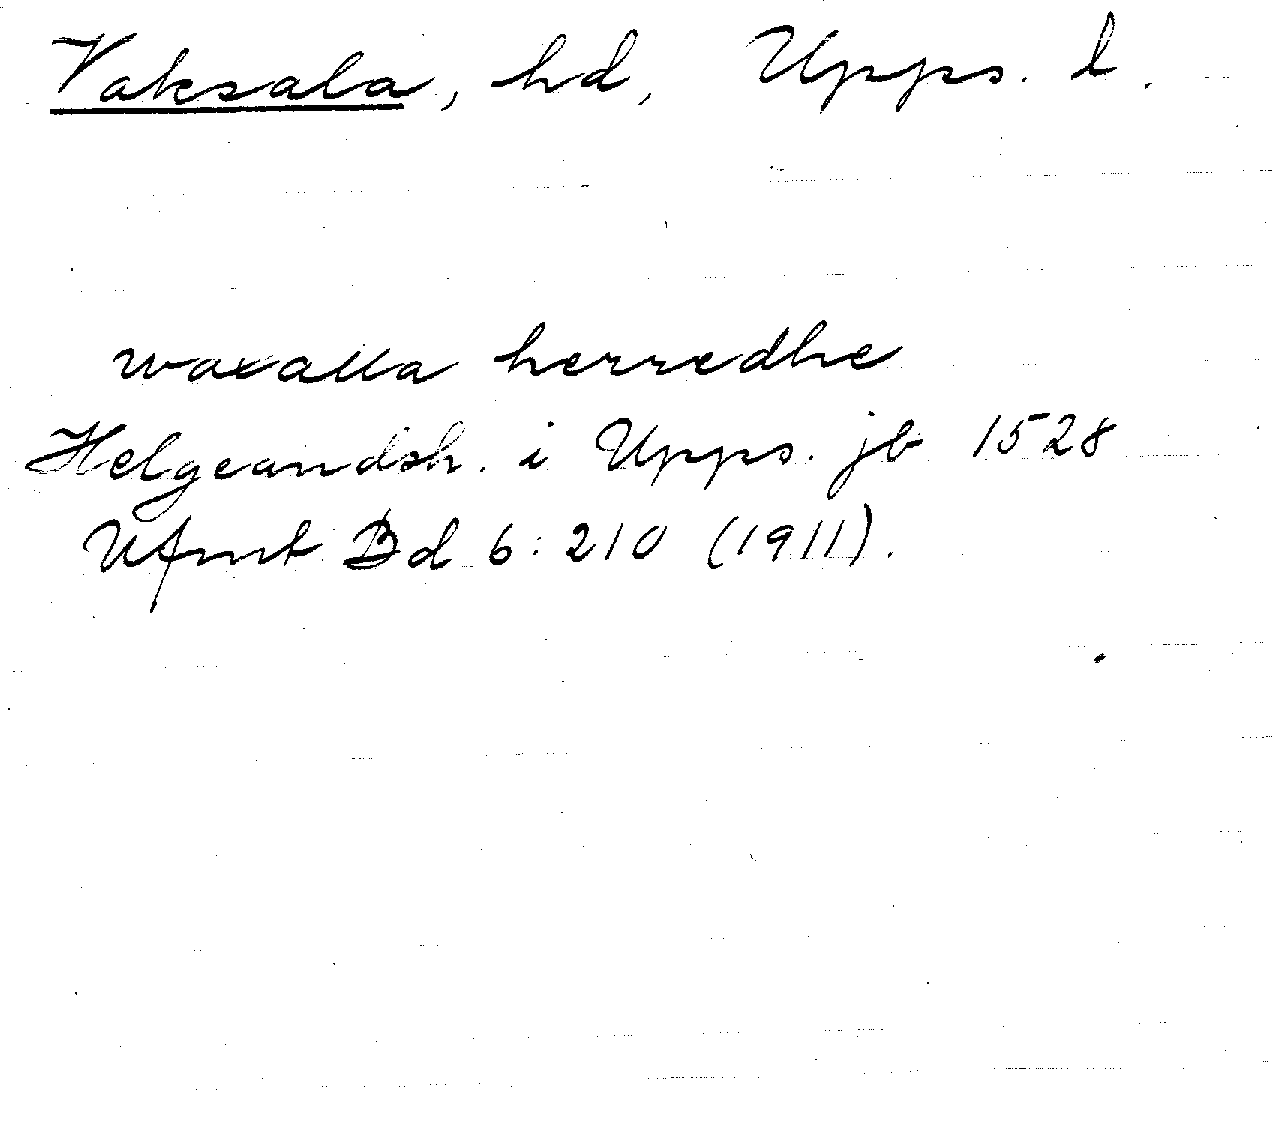 Vaksala, hd, Upps. l.
waxalla herredhe
Helgeandsh. i Upps. jb 1528
Ufmt Bd 6:210 (1911).